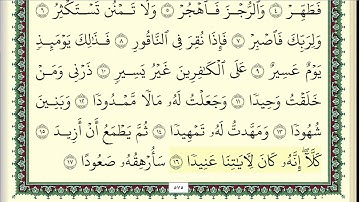 فَطَهِّرْ ٤ وَٱلرُّجْزَ فَٱهْجُرْ ٥ وَلَا تَمْنُن تَسْتَكْثِرُ ٦
وَلِرَبِّكَ فَٱصْبِرْ ٧ فَإِذَا نُقِرَ فِى ٱلنَّاقُورِ ٨ فَذَٰلِكَ يَوْمَئِذٍ
يَوْمٌ عَسِيرٌ ٩ عَلَى ٱلْكَٰفِرِينَ غَيْرُ يَسِيرٍ ١٠ ذَرْنِى وَمَنْ
خَلَقْتُ وَحِيدًا ١١ وَجَعَلْتُ لَهُۥ مَالًا مَّمْدُودًا ١٢ وَبَنِينَ
شُهُودًا ١٣ وَمَهَّدتُّ لَهُۥ تَمْهِيدًا ١٤ ثُمَّ يَطْمَعُ أَنْ أَزِيدَ ١٥
كَلَّآ ۖ إِنَّهُۥ كَانَ لِءَايَٰتِنَا عَنِيدًا ١٦ سَأُرْهِقُهُۥ صَعُودًا ١٧
٥٧٥